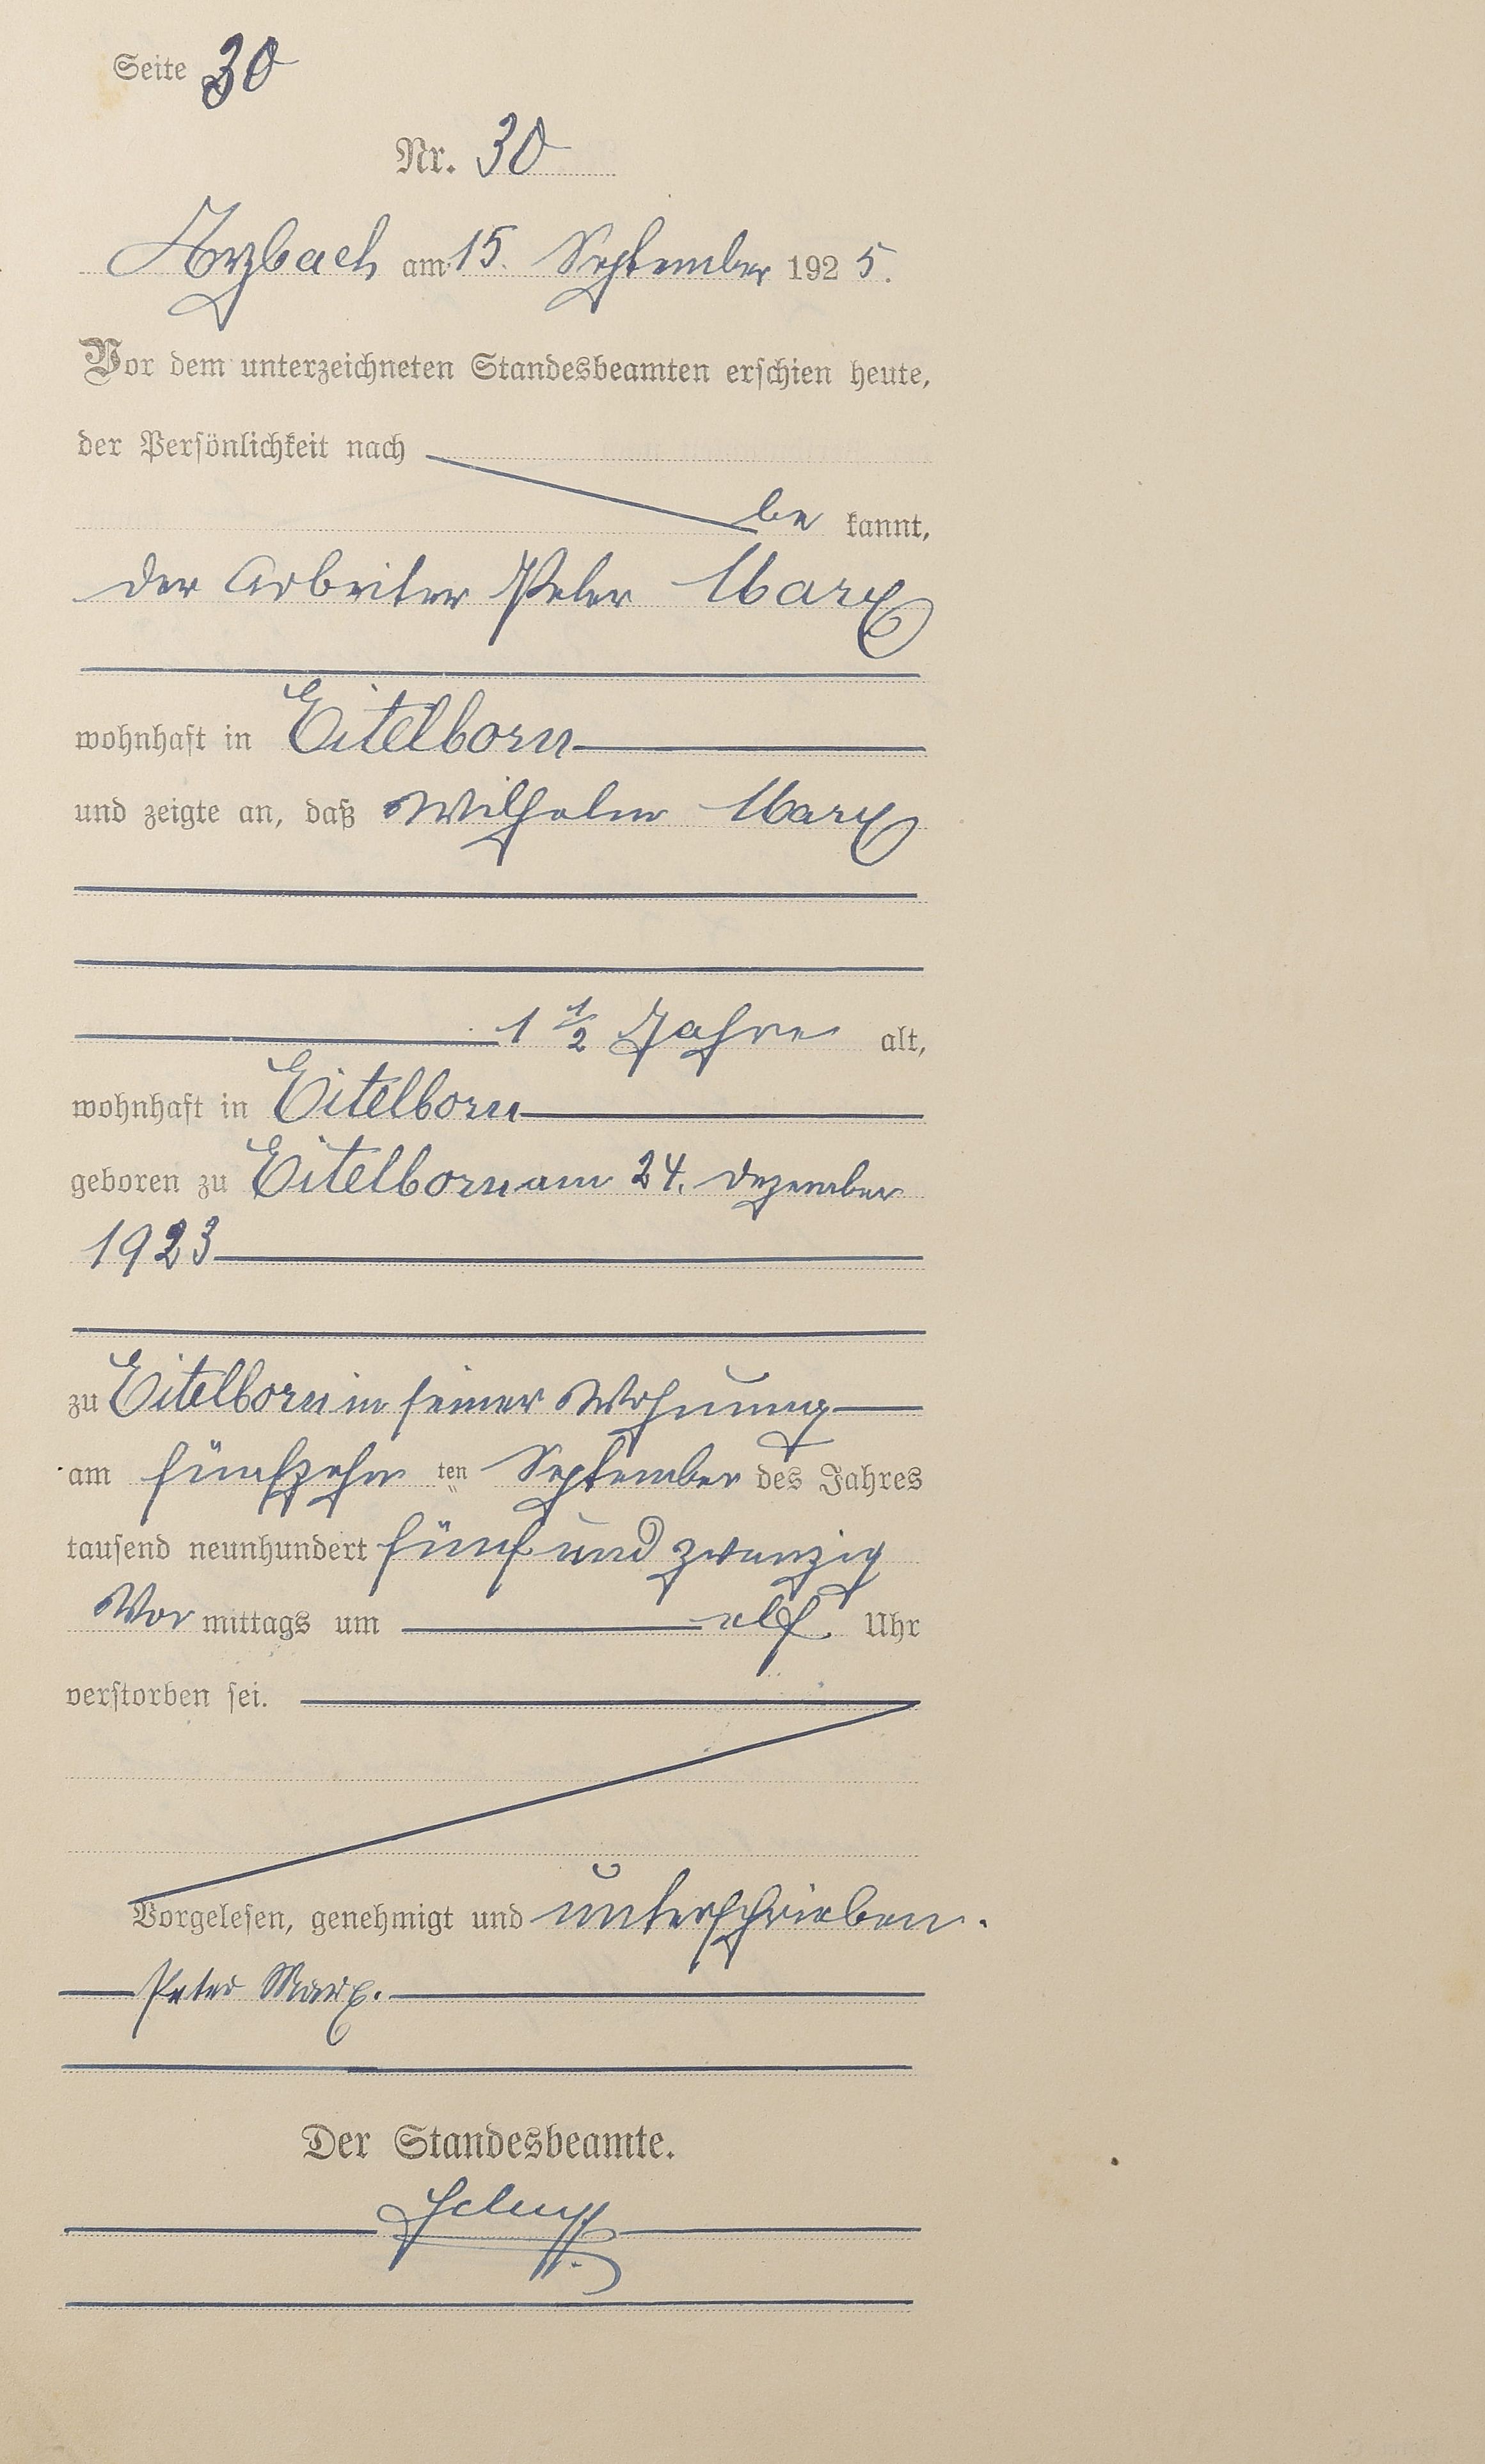 Seite 30
Nr. 30
Arzbach am 15. September 1925.
Vor dem unterzeichneten Standesbeamten erschien heute,
der Persönlichkeit nach
be kannt,
der Arbeiter Peter Marx
wohnhaft in Eitelborn
und zeigte an, daß Wilhelm Marx
1 1/2 Jahre alt,
wohnhaft in Eitelborn
geboren zu Eitelborn am 24. Dezember
1923
zu Eitelborn in seiner Wohnung
am fünfzehn ten September des Jahres
tausend neunhundert fünf und zwanzig
Vor mittags um elf Uhr
verstorben sei.
Vorgelesen, genehmigt und unterschrieben.
Peter Marx.
Der Standesbeamte.